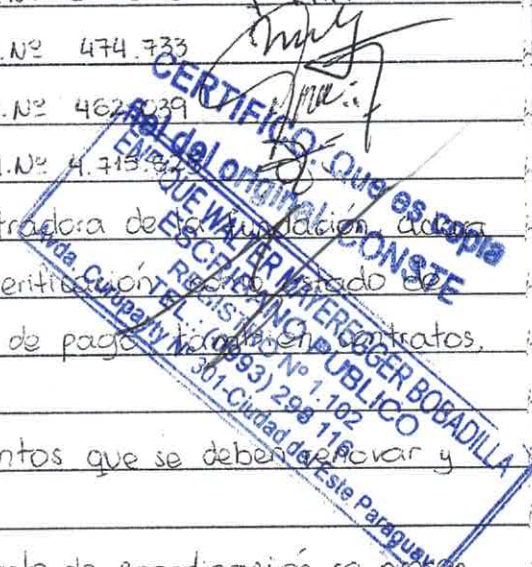 .Nº 474.733
.Nº 462.039
.Nº 4.715.
tradora de la fundación,
erificación como estado de
de pago también contratos,
ntos que se deben renovar y
de
CERTIFICO: Que es copia
fiel del original. CONSTE
ENRIQUE WALTER MATEREGGER BOBADILLA
ESCRIBANO PUBLICO
REGISTRO Nº 1.102
TEL.: (0993) 298 116
Avda. Curupayty Nº 301-Ciudad del Este Paraguay